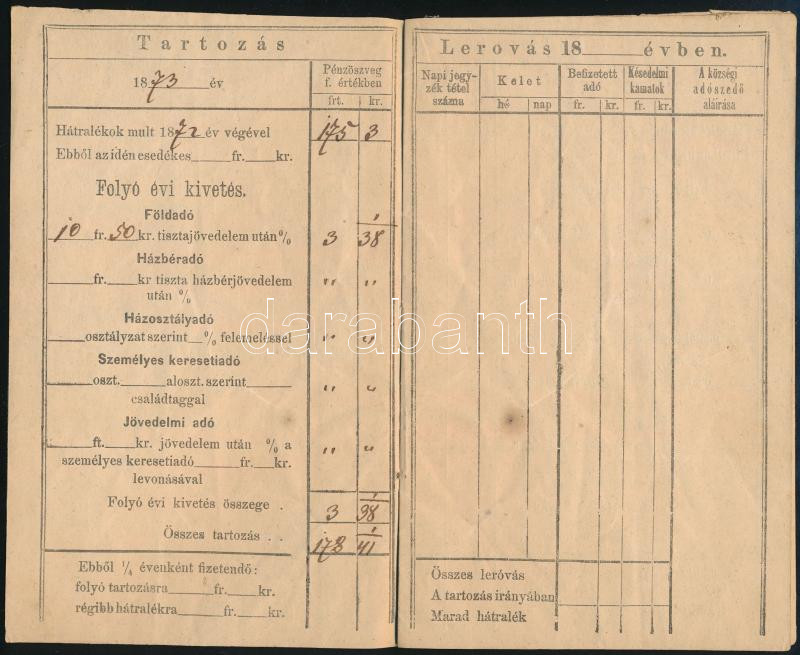 Tartozás
1873 év
Pénzöszveg
f. értékben
frt. kr.
Hátralékok mult 1872 év végével 175 3
Ebből az idén esedékes fr. kr.
Folyó évi kivetés.
Földadó
10 fr. 50 kr. tisztajövedelem után % 3 38
Házbéradó
fr. kr tiszta házbérjövedelem
után % " "
Házosztályadó
osztályzat szerint % felemeléssel " "
Személyes keresetiadó
oszt. aloszt. szerint " "
családtaggal
Jövedelmi adó
ft. kr. jövedelem után % a " "
személyes keresetiadó fr. kr.
levonásával
Folyó évi kivetés összege . 3 38
Összes tartozás . . 178 41
Ebből ¼ évenként fizetendő:
folyó tartozásra fr. kr.
régibb hátralékra fr. kr.
Lerovás 18 évben.
Napi jegy-
zék tétel
száma
Kelet
hé nap
Befizetett
adó
fr. kr.
Késedelmi
kamatok
fr. kr.
A községi
adószedő
aláirása
Összes leróvás
A tartozás irányában
Marad hátralék
darabanth